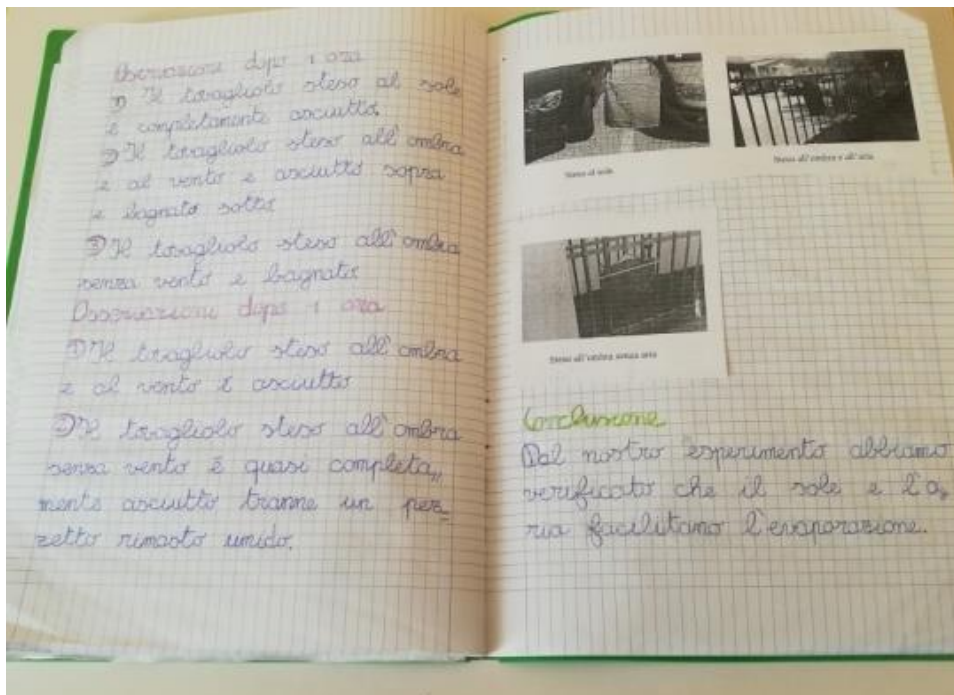 Osservazioni dopo 1 ora
1) Il tovagliolo steso al sole
è completamente asciutto.
2) Il tovagliolo steso all'ombra
e al vento è asciutto sopra
e bagnato sotto
3) Il tovagliolo steso all'ombra
senza vento è bagnato
Osservazioni dopo 1 ora
1) Il tovagliolo steso all'ombra
e al vento è asciutto
2) Il tovagliolo steso all'ombra
senza vento è quasi completa„
mente asciutto tranne un pez=
zetto rimasto umido.
Steso al sole
Steso all'ombra e all'aria
Steso all'ombra senza aria
Conclusione
Dal nostro esperimento abbiamo
verificato che il sole e l'a„
ria facilitano l'evaporazione.